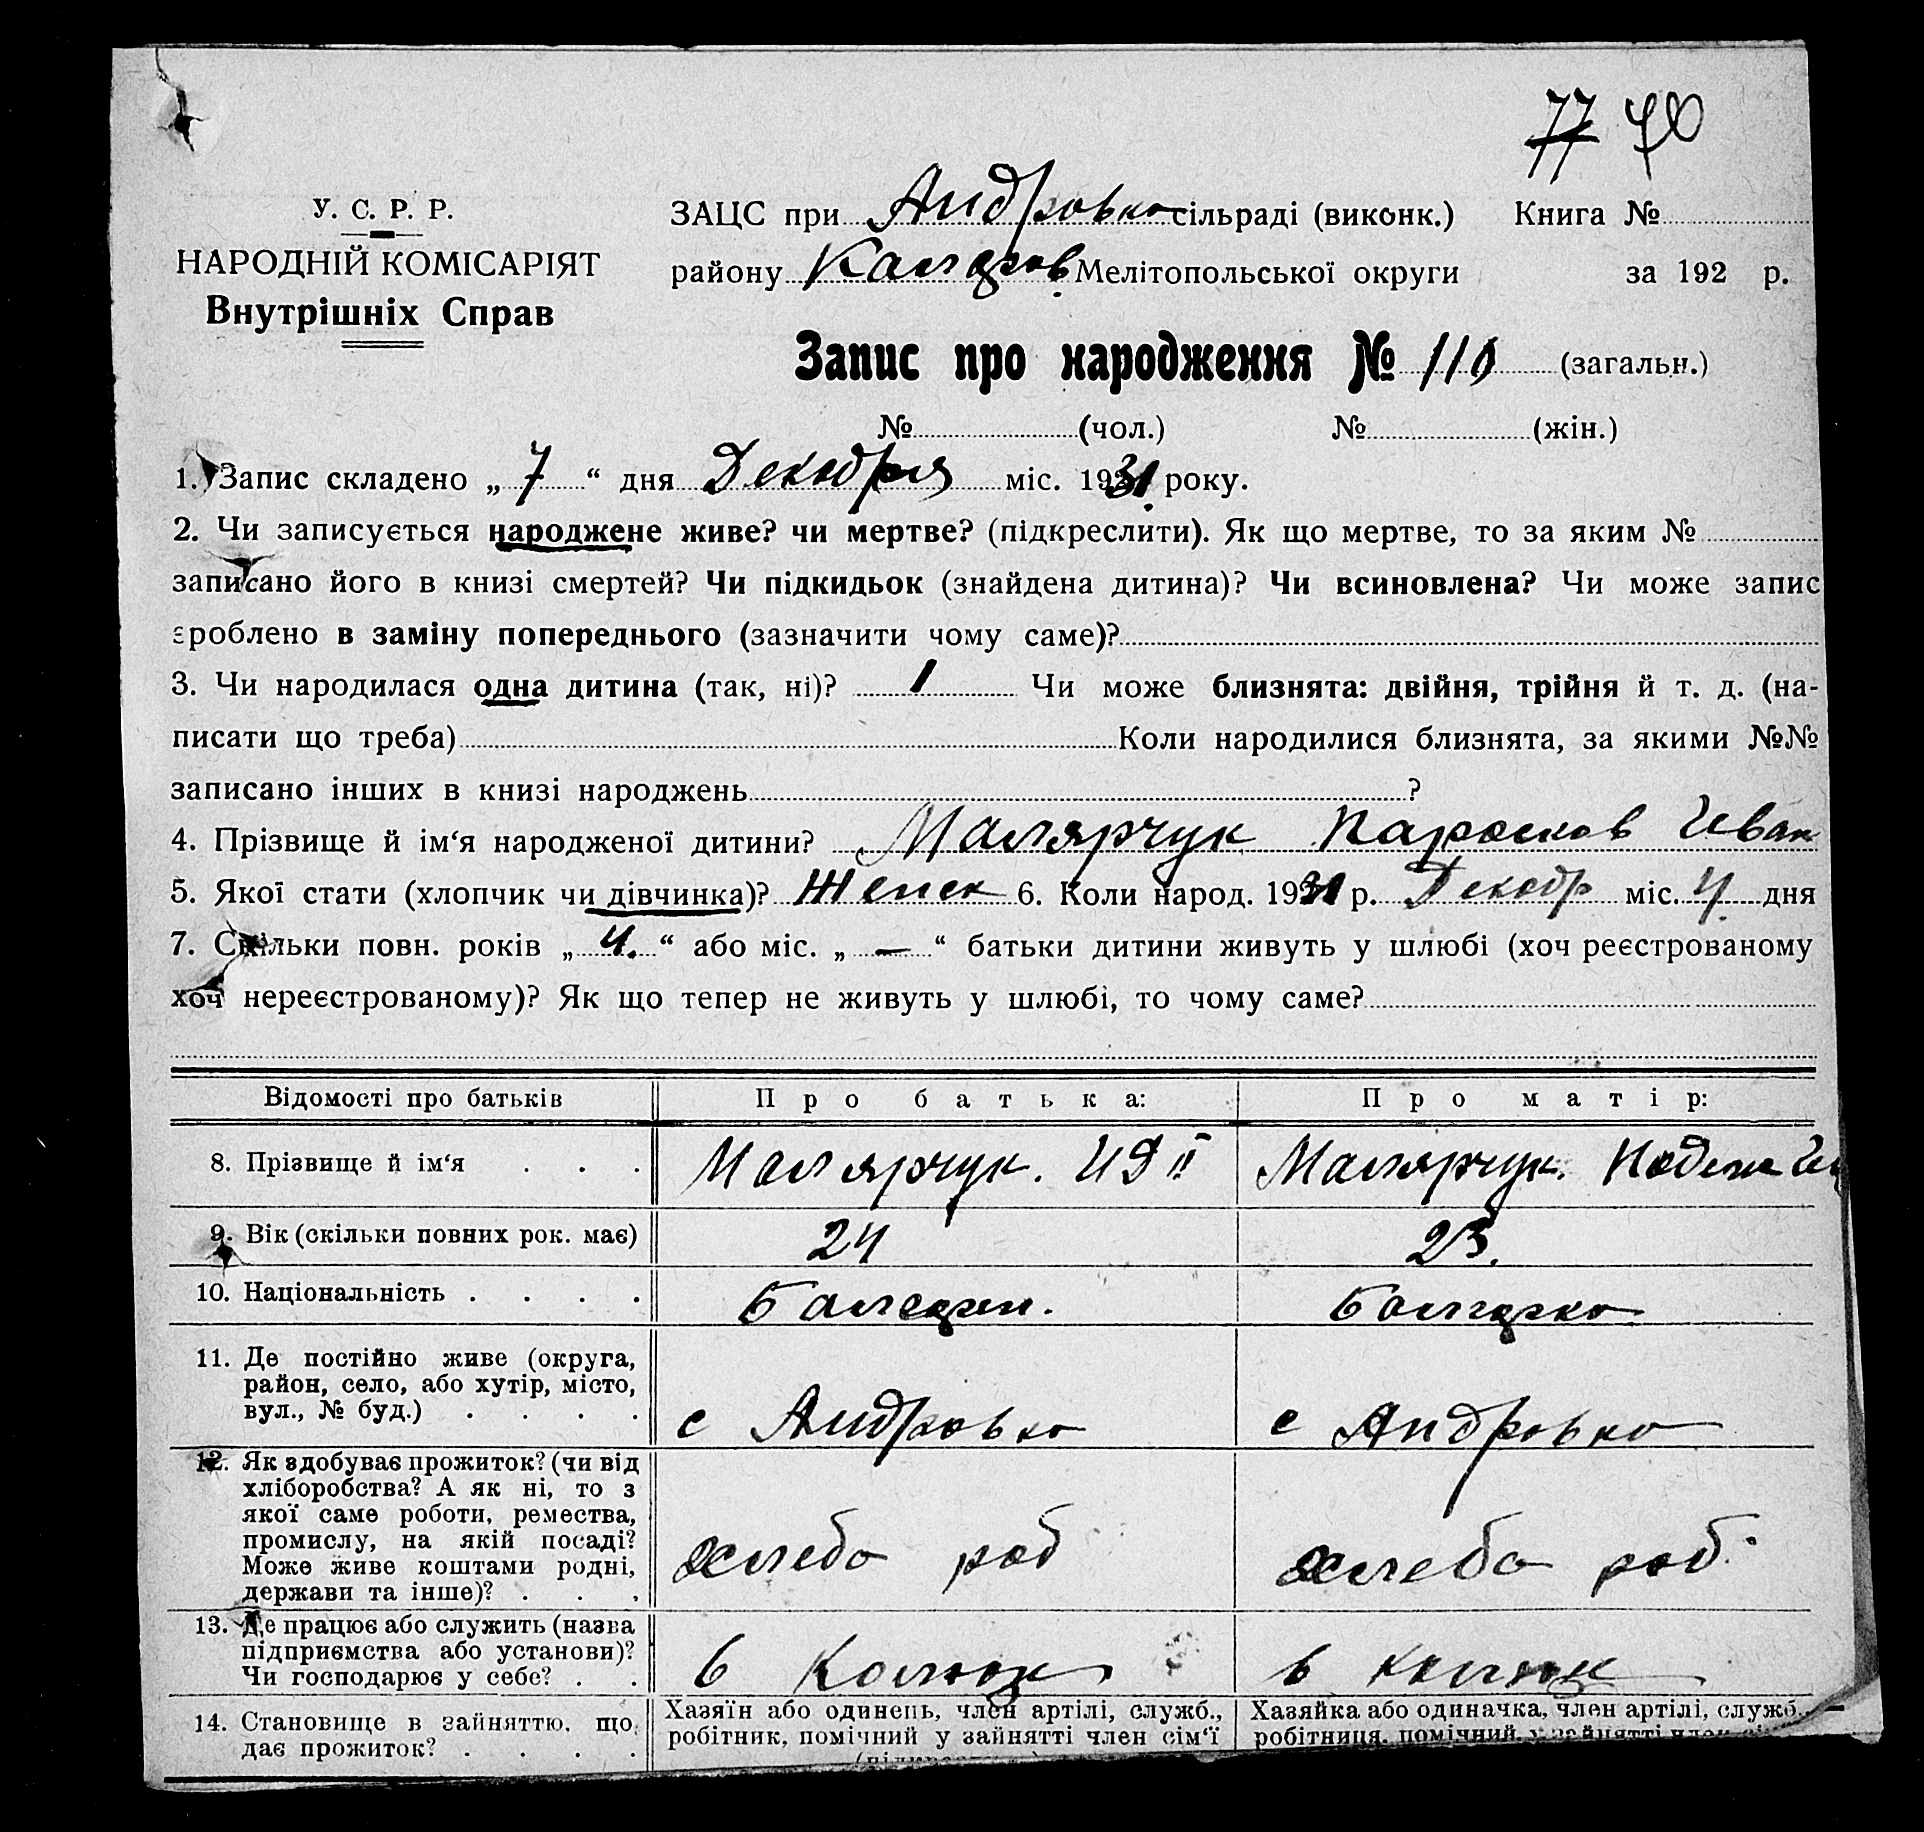 77 40
У. С. Р. Р.
НАРОДНІЙ КОМІСАРІЯТ
Внутрішніх Справ
ЗАЦС при Андровко сільраді (виконк.) Книга №
району Коларов. Мелітопольської округи за 192 р.
Запис про народження № 110 (загальн.)
№ (чол.) № (жін.)
1. Запис складено „ 7 “ дня Декабря міс. 1931 року.
2. Чи записується народжене живе? чи мертве? (підкреслити). Як що мертве, то за яким №
записано його в книзі смертей? Чи підкидьок (знайдена дитина)? Чи всиновлена? Чи може запис
зроблено в заміну попереднього (зазначити чому саме)?
3. Чи народилася одна дитина (так, ні)? 1 Чи може близнята: двійня, трійня й т. д. (на-
писати що треба) Коли народилися близнята, за якими №№
записано інших в книзі народжень ?
4. Прізвище й ім‘я народженої дитини? Малярчук Парасков Иван
5. Якої стати (хлопчик чи дівчинка)? Женск 6. Коли народ. 1931 р. Декабр міс. 4. дня
7. Скільки повн. років „ 4. “ або міс. „ — “ батьки дитини живуть у шлюбі (хоч реєстрованому
хоч нереєстрованому)? Як що тепер не живуть у шлюбі, то чому саме?
Відомості про батьків Про батька: Про матір:
8. Прізвище й ім‘я . . . Малярчук. Малярчук. Надеж
9. Вік (скільки повних рок. має) 24 23.
10. Національність . . . . Балгарин. Болгарка
11. Де постійно живе (округа,
район, село, або хутір, місто,
вул., № буд.) . . . . с Андровка с Андровка
12. Як здобуває прожиток? (чи від
хліборобства? А як ні, то з
якої саме роботи, ремества,
промислу, на якій посаді?
Може живе коштами родні,
держави та інше)? . . . хлебо роб хлебо роб.
13. Де працює або служить (назва
підприємства або установи)?
Чи господарює у себе? . . в Колхоз в колхоз
14. Становище в зайняттю, що
дає прожиток? . . . .
Хазяїн або одинець, член артілі, служб.,
робітник, помічний у зайнятті член сім‘ї
Хазяйка або одиначка, член артілі, служб.,
робітниця, помічний у зайнятті член